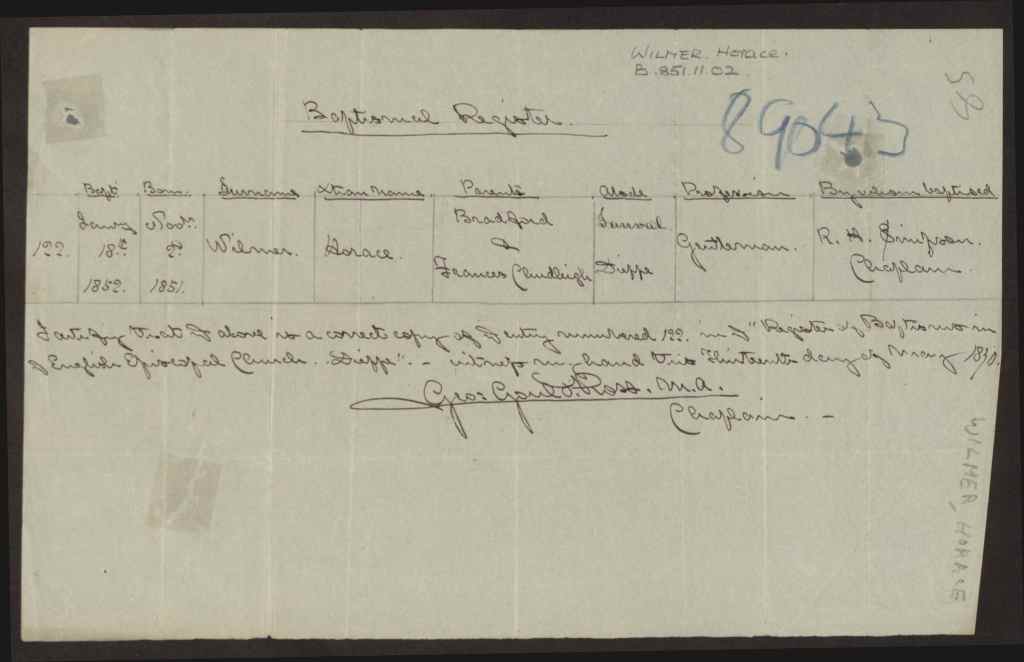 WILMER. HORACE.
B. 851.11.02.
89043
Baptismal Register.
Bapt. Born. Surname Xtian Name Parents Abode Profession By whom baptised
Jany Novr. Bradford
122. 18th 2. Wilmer. Horace. & Gentleman. R. H. Simpson.
Frances Chudleigh Dieppe Chaplain.
1852. 1851.
I certify that ye above is a correct copy of ye entry numbered 122. in ye "Register of Baptisms in
ye English Episcopal Church. Dieppe". - witness my hand this thirteenth day of May
Ross. M.A.
Chaplain. -
WILMER, HORACE